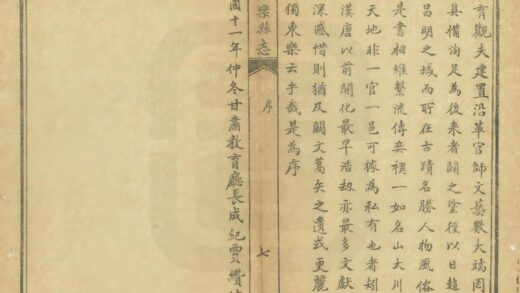 育觀夫建置沿革官師文藝數大端罔
具備洵足為後來者闢之塗徑以日趨
昌明之域而所在古蹟名勝人物風俗
是書相維繫流傳奕禩一如名山大川
天地非一官一邑可據為私有也者矧
漢唐以前開化最早浩劫亦最多文獻
深感惜則猶及闕文蒿矢之遺或更麗
獨東樂云乎哉是為序
樂縣志
序
七
國十一年仲冬甘肅教育廳長成紀賈纘